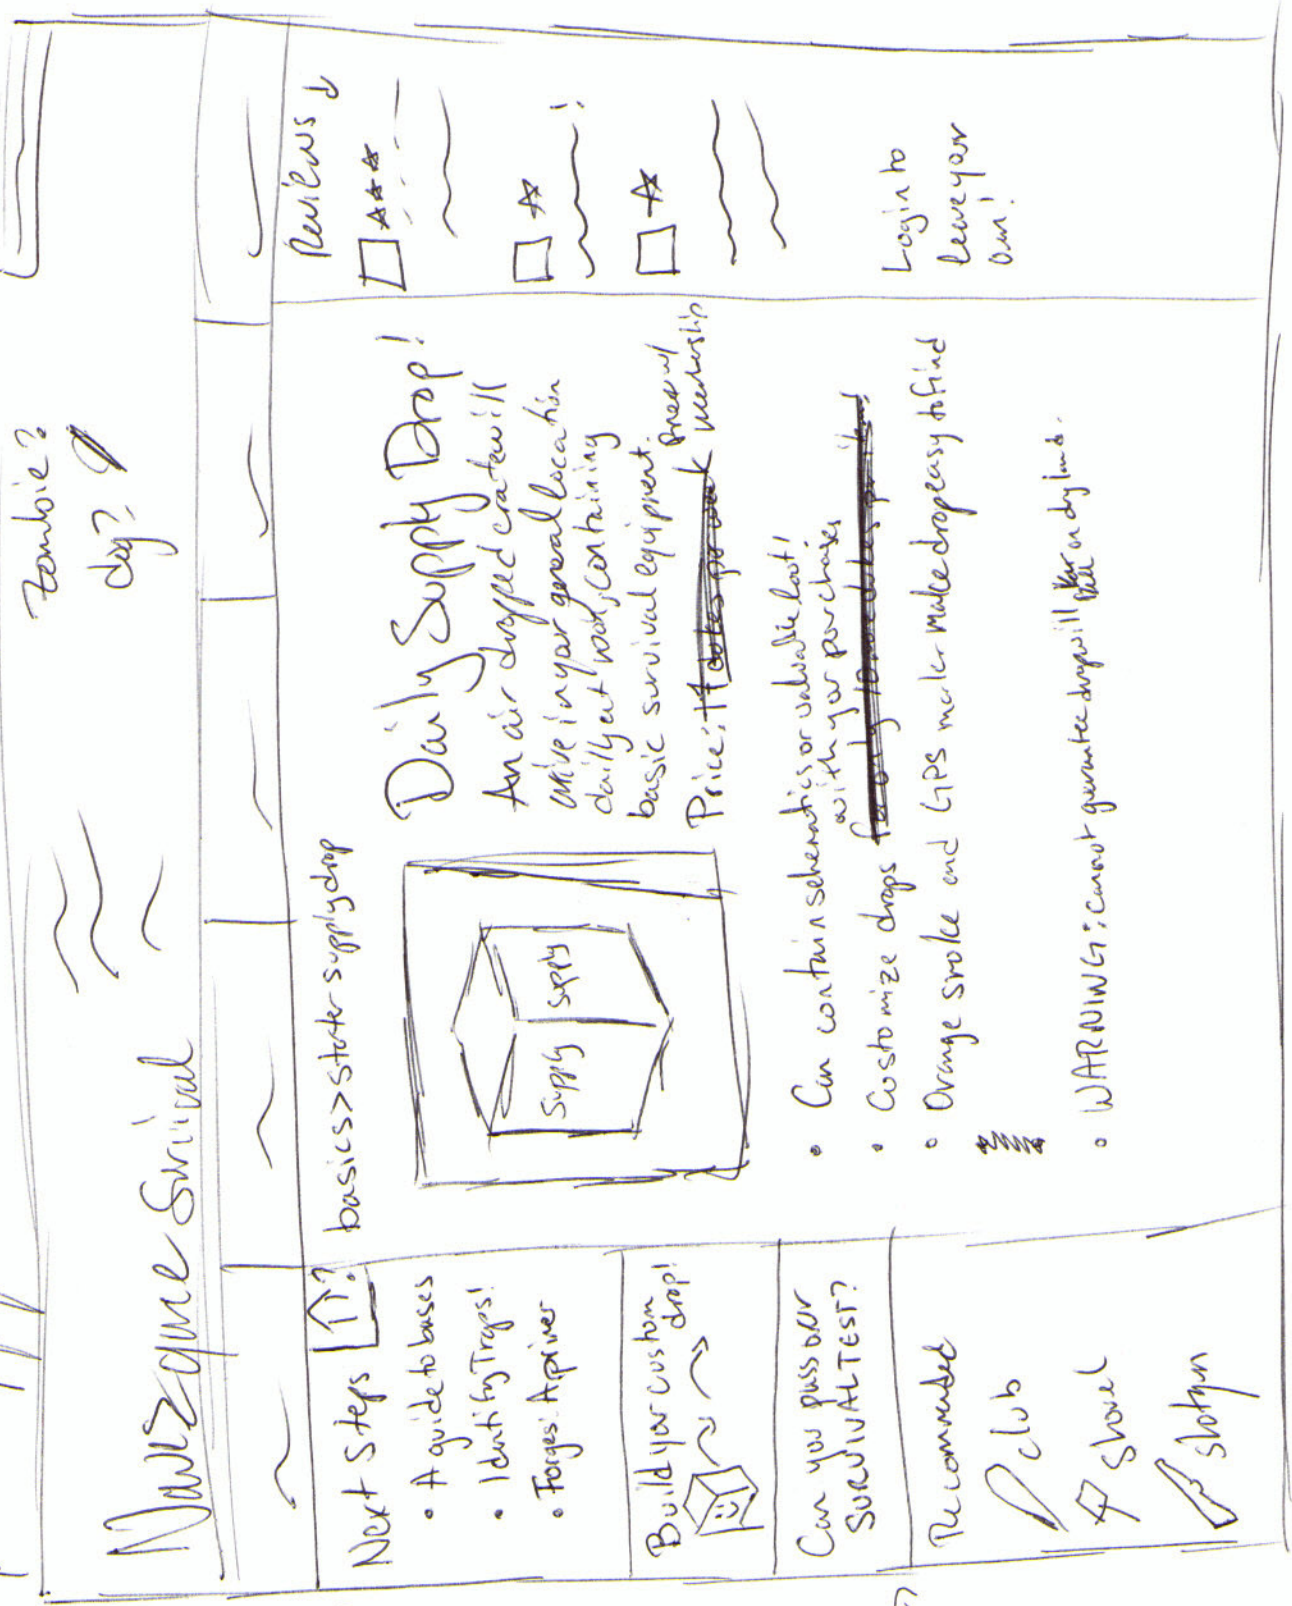 Zombie?
dog?
Navezgane Survival
Next Steps
• A guide to bases
• Identifying Traps!
• Forges: A primer
Build your custom
drop!
Can you pass our
SURVIVAL TEST?
Recommended
club
Shovel
Shotgun
basics > starter supply drop
Supply
Supply
Daily Supply Drop!
An air dropped crate will
arrive in your general location
daily at noon, containing
basic survival equipment.
Price: 17 dukes per week
membership
• Can contain schematics or valuable loot!
• Customize drops with your purchases
• Orange smoke and GPS marker make drop easy to find
• WARNING: Cannot guarantee drop will on dry land.
Reviews ↓
Login to
leave your
own!